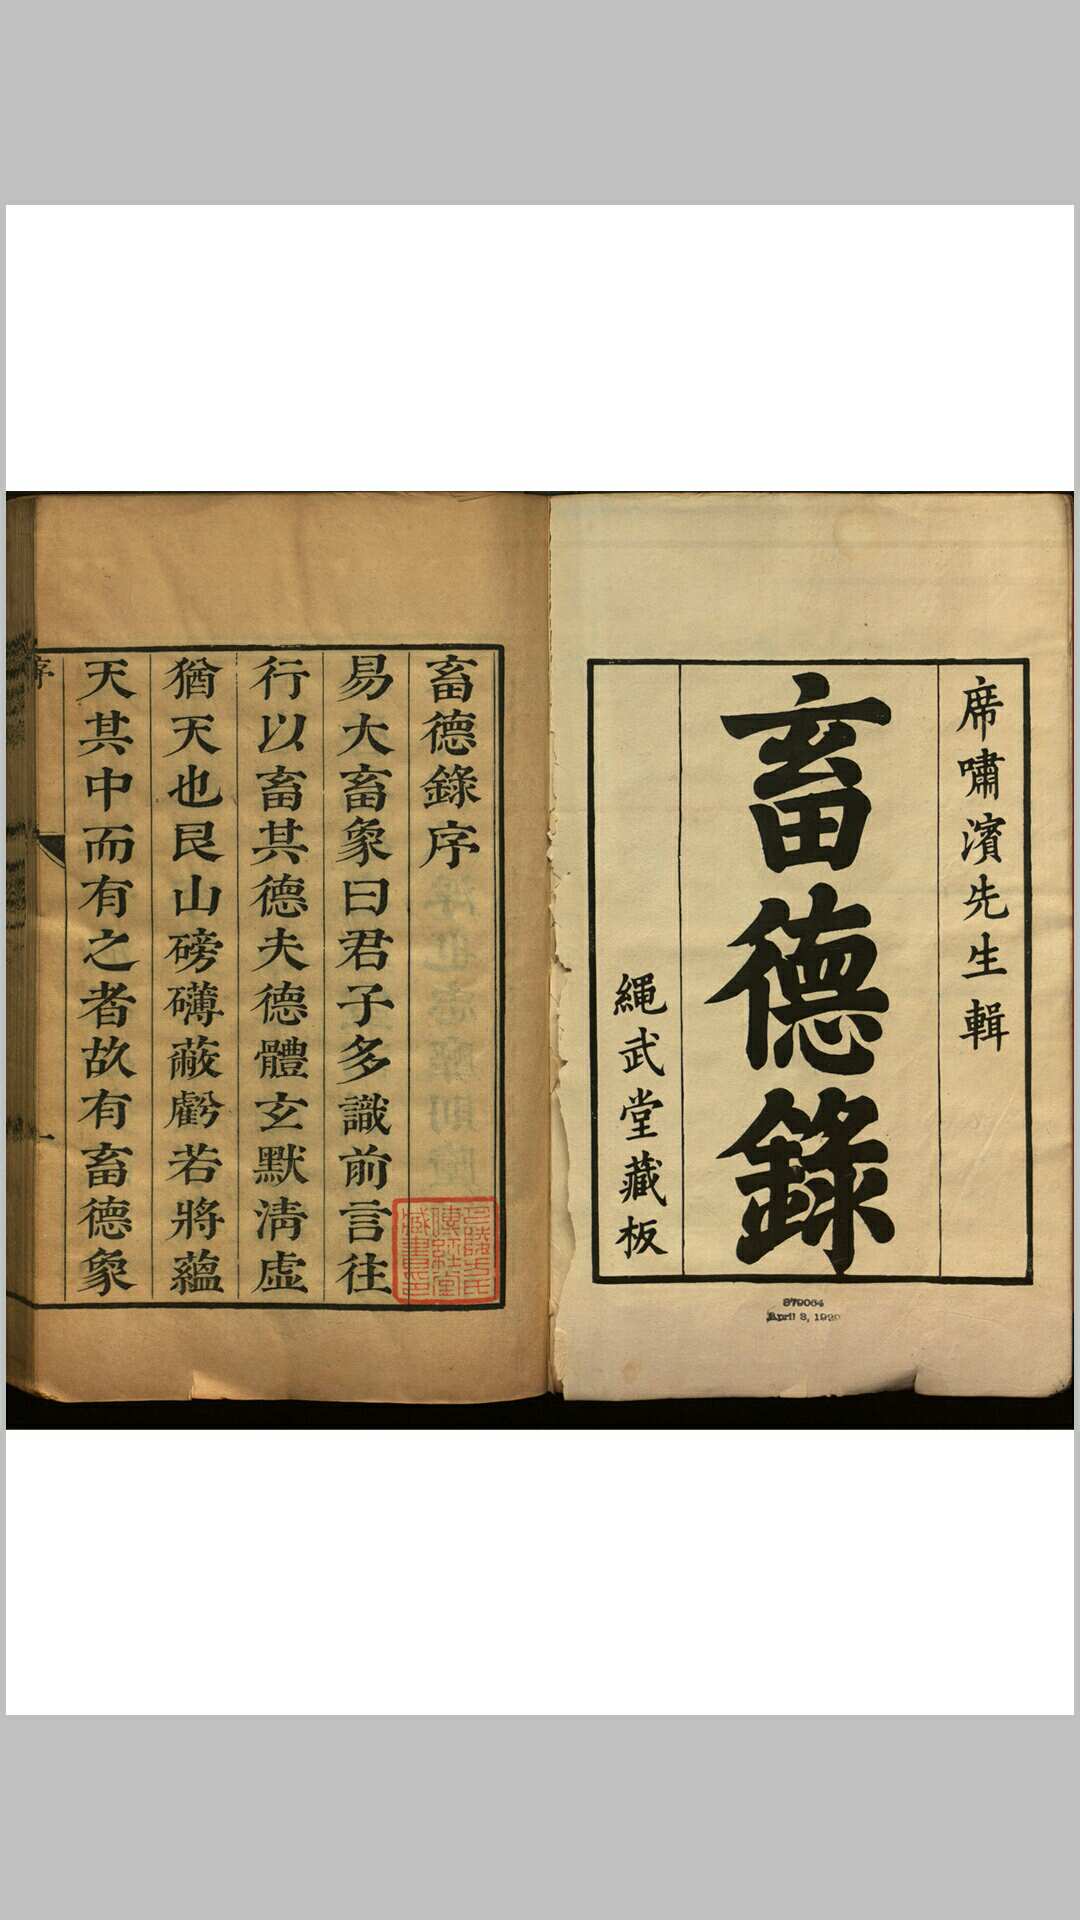 席嘯濱先生輯
畜德錄
繩武堂藏板
379064
April 3, 1929
畜德錄序
易大畜象曰君子多識前言往
行以畜其德夫德體玄默清虛
猶天也艮山磅礡蔽虧若將蘊
天其中而有之者故有畜德象
序
一